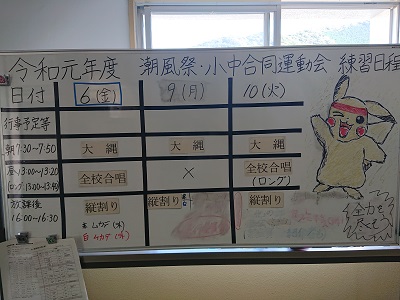 令和元年度 潮風祭・小中合同運動会 練習日程
日付 6(金) 9(月) 10(火)
行事予定等
朝7:30-7:50 大縄 大縄 大縄
昼13:00~13:20 全校合唱 × 全校合唱
(ロング 13:00-13:40) (ロング)
放課後 縦割り 縦割り 縦割り
16:00-16:30
青 ムカデ(外)
白 ムカデ(外)
全力を
尽くせ